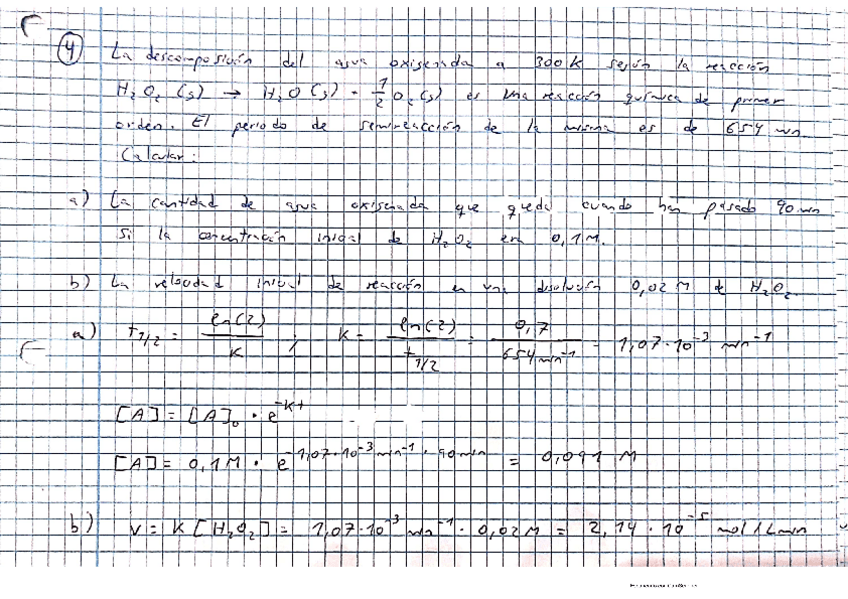 4 La descomposición del agua oxigenada a 300 K según la reacción
H₂O₂ (g) → H₂O (g) + 1/2 O₂ (g) es una reacción química de primer
orden. El periodo de semireacción de la misma es de 654 min
Calcular:
a) La cantidad de agua oxigenada que queda cuando han pasado 90 min
si la concentración inicial de H₂O₂ era 0,1 M.
b) La velocidad inicial de reacción en una disolución 0,02 M de H₂O₂.
a) t₁/₂ = ln(2)/K ; K = ln(2)/t₁/₂ = 0,7/654 min⁻¹ = 1,07·10⁻³ min⁻¹
[A] = [A]₀ · e^-Kt
[A] = 0,1 M · e^-1,07·10⁻³ min⁻¹ · 90 min = 0,091 M
b) v = K [H₂O₂] = 1,07·10⁻³ min⁻¹ · 0,02 M = 2,14 · 10⁻⁵ mol / L min